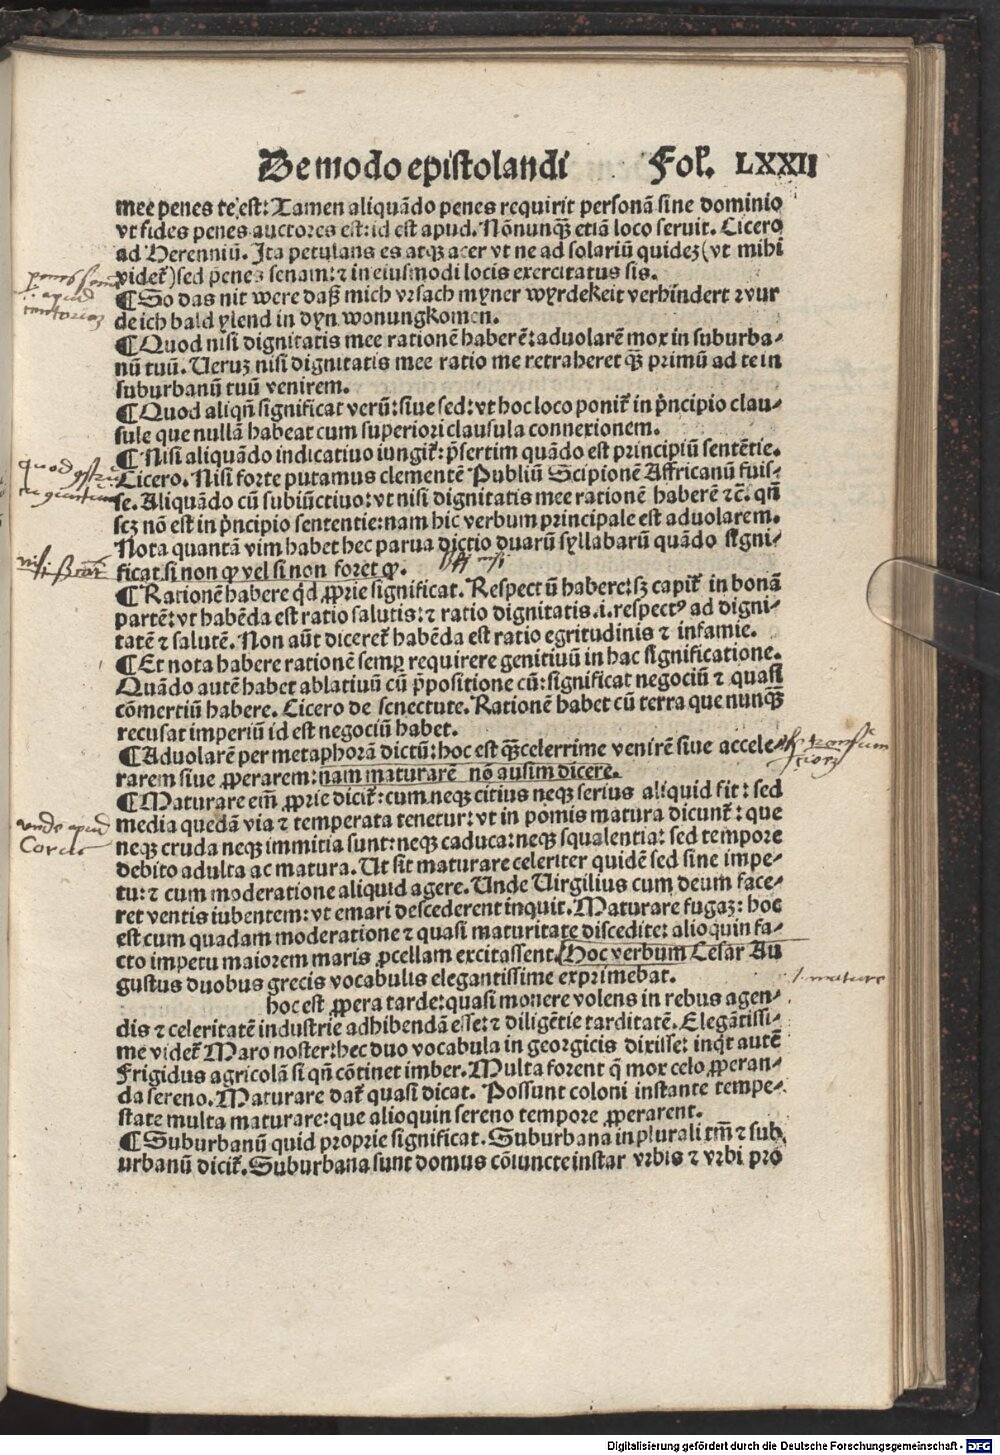 De modo epistolandi Fol. LXXII
mee penes te est: Tamen aliquãdo penes requirit personã sine dominio
vt fides penes auctores est: id est apud. Nõnunqꝫ etiã loco seruit. Cicero
ad Herenniũ. Ita petulans es atqꝫ acer vt ne ad solariũ quidez (vt mihi
videt᷑) sed penes senam: ⁊ in eiusmodi locis exercitatus sis.
¶ So das nit were daß mich vrsach myner wyrdekeit verhindert ⁊vur
de ich bald ylend in dyn wonung komen.
¶ Quod nisi dignitatis mee rationẽ haberẽ: aduolarẽ mox in suburba-
nũ tuũ. Veruz nisi dignitatis mee ratio me retraheret qꝫ̃ primũ ad te in
suburbanũ tuũ venirem.
¶ Quod aliqñ significat verũ: siue sed: vt hoc loco ponit᷑ in p̃ncipio clau-
sule que nullã habeat cum superiori clausula connexionem.
¶ Nisi aliquãdo indicatiuo iungit᷑: p̃sertim quãdo est principiũ sentẽtie.
Cicero. Nisi forte putamus clementẽ Publiũ Scipionẽ Affricanũ fuis-
se. Aliquãdo cũ subiũctiuo: vt nisi dignitatis mee rationẽ haberẽ ⁊c̃. qñ
scꝫ nõ est in p̃ncipio sententie: nam hic verbum principale est aduolarem.
Nota quantã vim habet hec parua dictio duarũ syllabarũ quãdo signi-
ficat si non ꝙ vel si non foret ꝙ.
¶ Rationẽ habere qd́ ꝓprie significat. Respectũ habere: sꝫ capit᷑ in bonã
partẽ: vt habẽda est ratio salutis: ⁊ ratio dignitatis .i. respectꝰ ad digni-
tatẽ ⁊ salutẽ. Non aũt diceret᷑ habẽda est ratio egritudinis ⁊ infamie.
¶ Et nota habere rationẽ semꝑ requirere genitiuũ in hac significatione.
Quãdo autẽ habet ablatiuũ cũ p̃positione cũ: significat negociũ ⁊ quasi
cõmertiũ habere. Cicero de senectute. Rationẽ habet cũ terra que nunqꝫ̃
recusat imperiũ id est negociũ habet.
¶ Aduolarẽ per metaphorã dictũ: hoc est qꝫ̃celerrime venirẽ siue accele-
rarem siue ꝓperarem: nam maturarẽ nõ ausim dicere.
¶ Maturare em̃ ꝓprie dicit᷑: cum neqꝫ citius neqꝫ serius aliquid fit: sed
media quedã via ⁊ temperata tenetur: vt in pomis matura dicunt᷑: que
neqꝫ cruda neqꝫ immitia sunt: neqꝫ caduca: neqꝫ squalentia: sed tempore
debito adulta ac matura. Vt sit maturare celeriter quidẽ sed sine impe-
tu: ⁊ cum moderatione aliquid agere. Vnde Virgilius cum deum face-
ret ventis iubentem: vt e mari descederent inquit. Maturare fugaz: hoc
est cum quadam moderatione ⁊ quasi maturitate discedite: alioquin fa-
cto impetu maiorem maris ꝓcellam excitassent. Hoc verbum Cesar Au
gustus duobus grecis vocabulis elegantissime exprimebat.
hoc est ꝓpera tarde: quasi monere volens in rebus agen-
dis ⁊ celeritatẽ industrie adhibendã esse: ⁊ diligẽtie tarditatẽ. Elegãtissi-
me videt᷑ Maro noster: hec duo vocabula in georgicis dixisse: inqt autẽ
Frigidus agricolã si qñ cõtinet imber. Multa forent q̃ mox celo ꝓperan-
da sereno. Maturare dat᷑ quasi dicat. Possunt coloni instante tempe-
state multa maturare: que alioquin sereno tempore ꝓperarent.
¶ Suburbanũ quid proprie significat. Suburbana in plurali tm̃ ⁊ sub
urbanũ dicit᷑. Suburbana sunt domus cõiuncte instar vrbis ⁊ vrbi pro
Digitalisierung gefördert durch die Deutsche Forschungsgemeinschaft - DFG